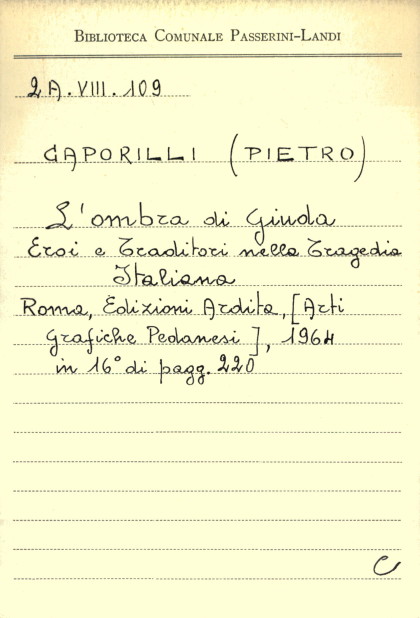 BIBLIOTECA COMUNALE PASSERINI-LANDI
2A.VIII.109
CAPORILLI (PIETRO)
L'ombra di Giuda
Eroi e Traditori nella Tragedia
Italiana
Roma, Edizioni Ardita, [Arti
Grafiche Pedanesi], 1964
in 16° di pagg. 220
C